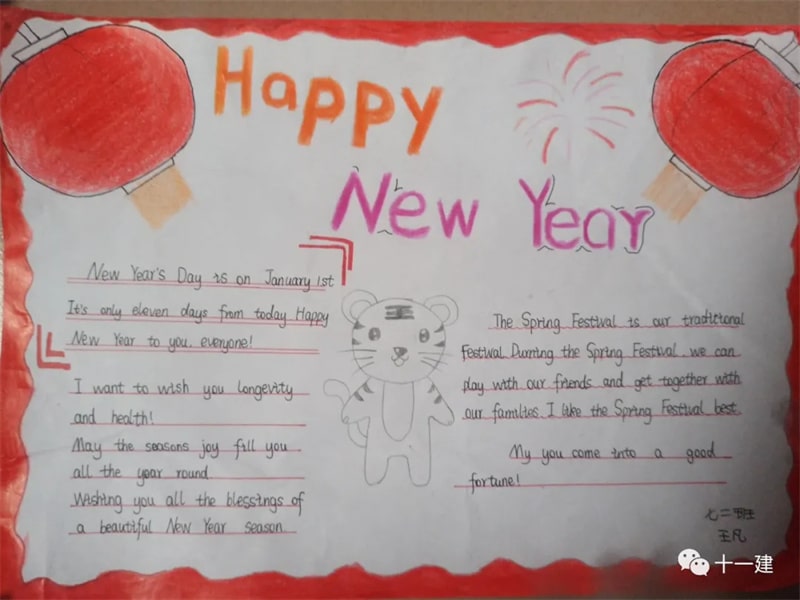 Happy
New Year
New Year's Day is on January 1st
It's only eleven days from today Happy
New Year to you. everyone!
I want to wish you longevity
and health!
May the seasons joy fill you
all the year round
Wishing you all the blessings of
a beautiful New Year season.
The Spring Festival is our traditional
Festival. Durring the Spring Festival. we can
play with our friends and get together with
our families. I like the Spring Festival best.
My you come into a good
fortune!
七二班
王凡
十一建